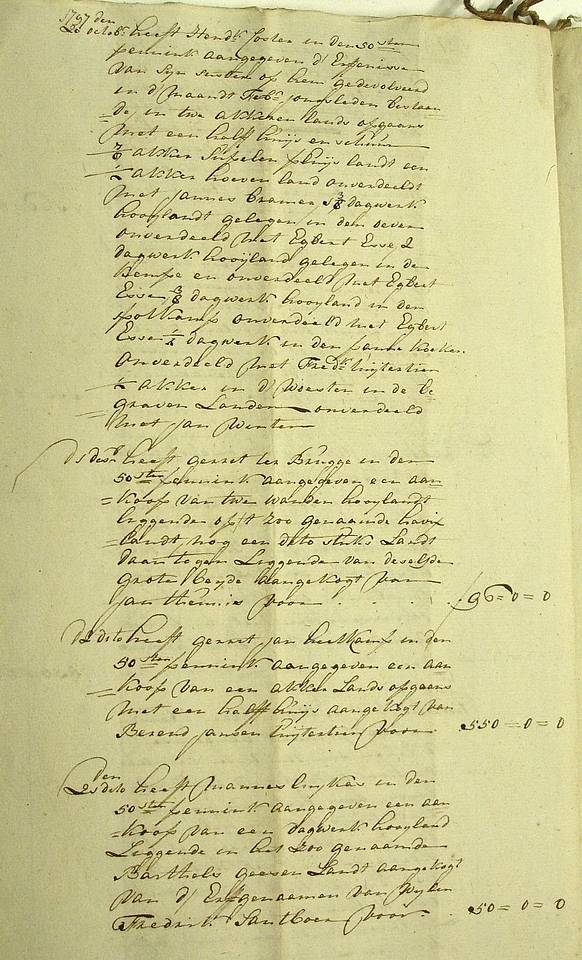 1797 den
20 octobr heeft Hendk Coster in den 50 sten
pennink aangegeven d' Erfenisse
van syn susters op hem gedevolveerd
in d' maandt Febr. jongsleden bestaan
de, in twe akkeren lands opgaans
met een half huijs en schuur
7/8 akker Supelen phuijs landt een
1/2 akker hoeven land onverdeeldt
met jannes Cramer 3/8 dagwerk
hooylandt gelegen in den oever
onverdeeld met Egbert Esse 2
dagwerk hooyland gelegen in de
Kempe en onverdeeld met Egbert
Esse 3/8 dagwerk hooyland in den
onverdeeld met Egbert
Esse 1/2 dagwerk in den
onverdeeld met Fredk Luijtertien
1/2 akker in d' Woesten in de be
graven Landen onverdeeld
met jan Winter
heeft gerret ter Brugge in den
50 sten pennink aangegeven een aan
koop van twe wanden hooylandt
liggende op 't zoo genaamde havix
landt nog een dito stuks Landt
daar tegen Liggende van deselfde
grote beyde aangekogt van
jan themis voor . . . . 96=0=0
dito heeft gerret jan heetkamp in den
50 sten pennink aangegeven een aan
koop van een akker Lands opgaans
met een half huijs aangekogt van
Berend jansen Luijtertien voor 550=0=0
den
20 dito heeft Mannes luykas in den
50 sten pennink aangegeven een aan
koop van een dagwerk hooyland
Liggende in het zoo genaamde
Barthels geesen Landt aangekogt
van d' Erfgenaamen van wylen
Fredrik Santboer voor 50=0=0